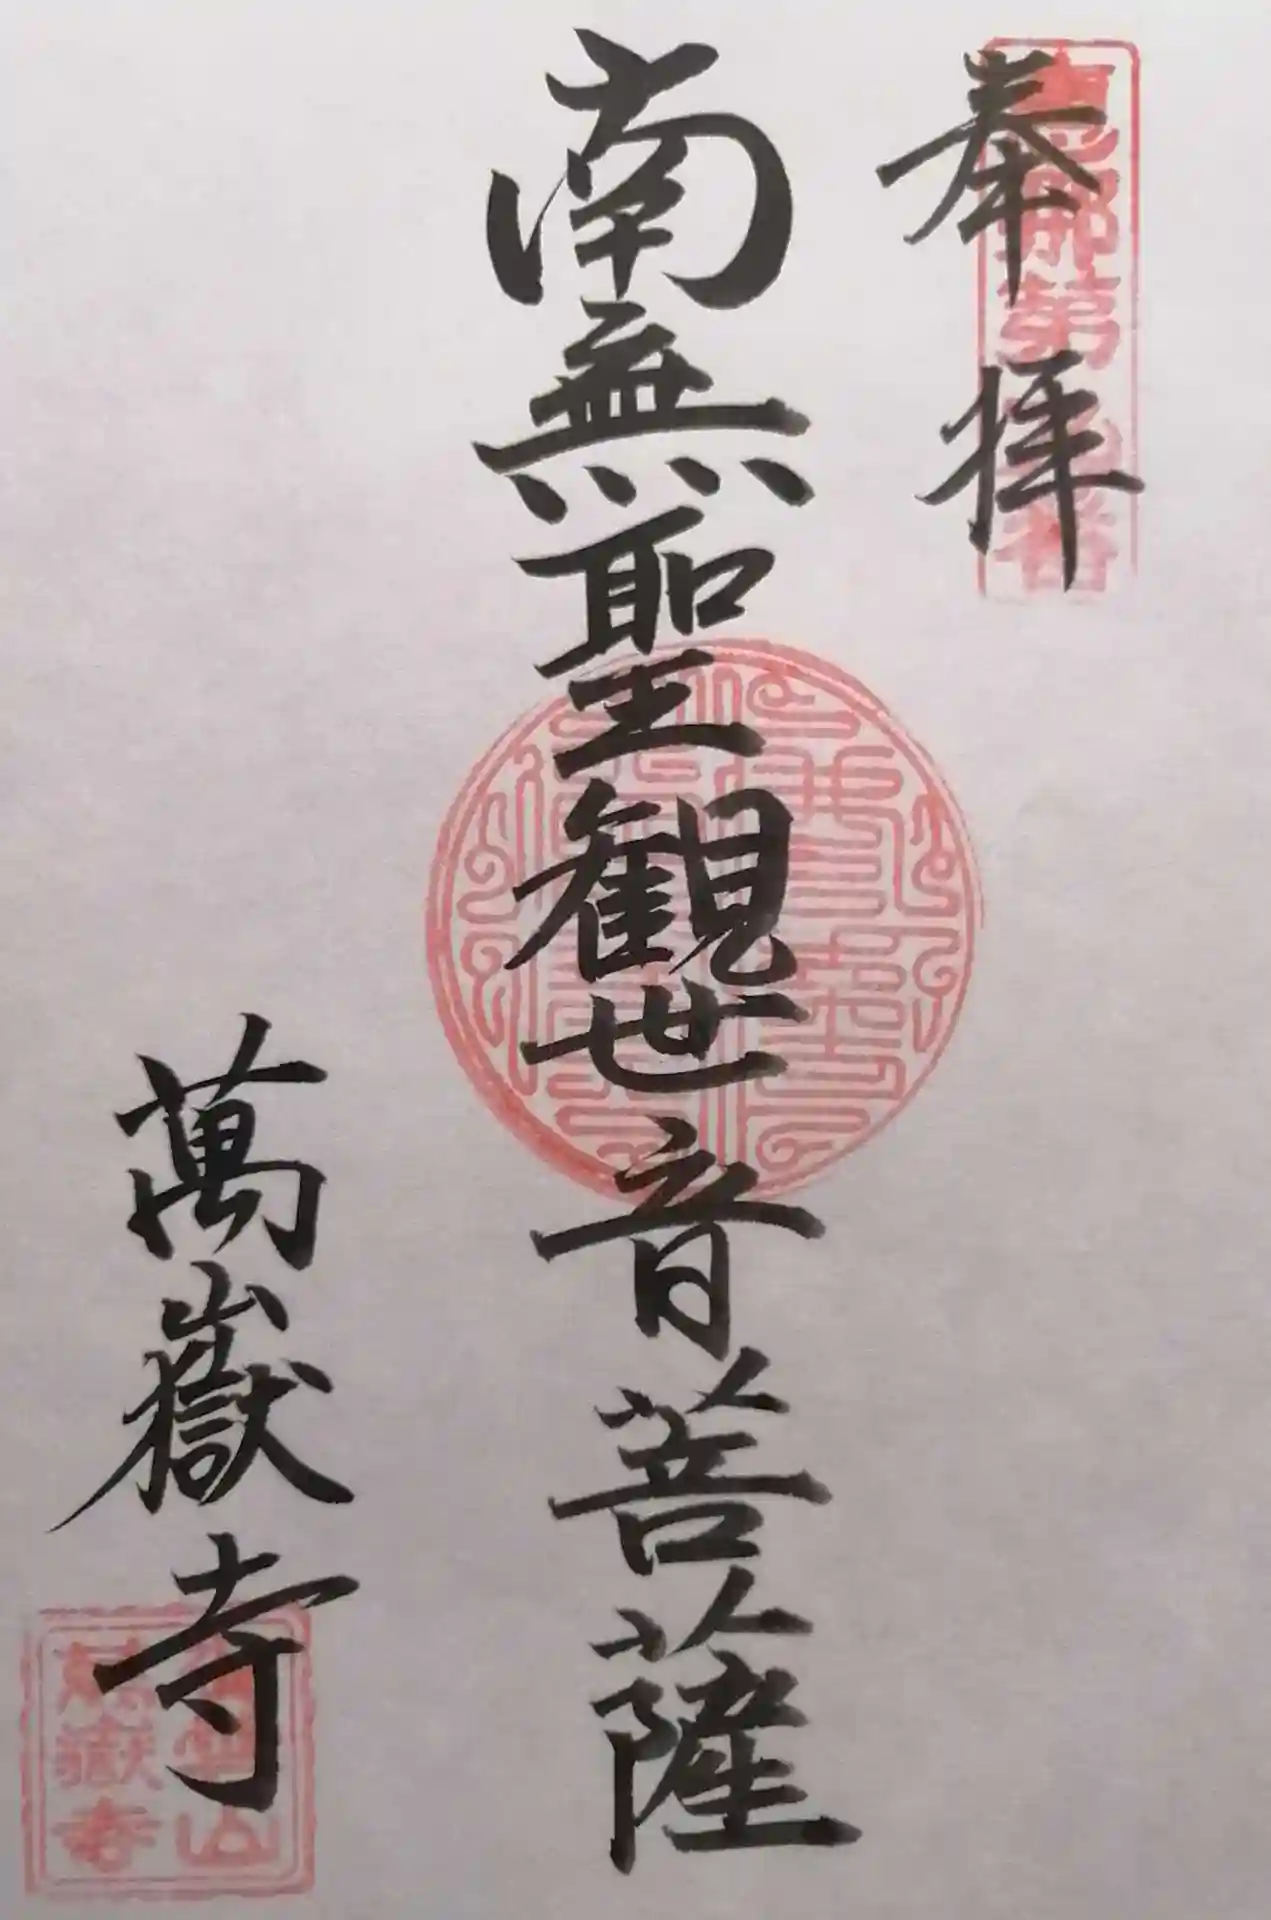 奉拝
恵那第 番
南無聖観世音菩薩
萬嶽寺
山
萬嶽寺